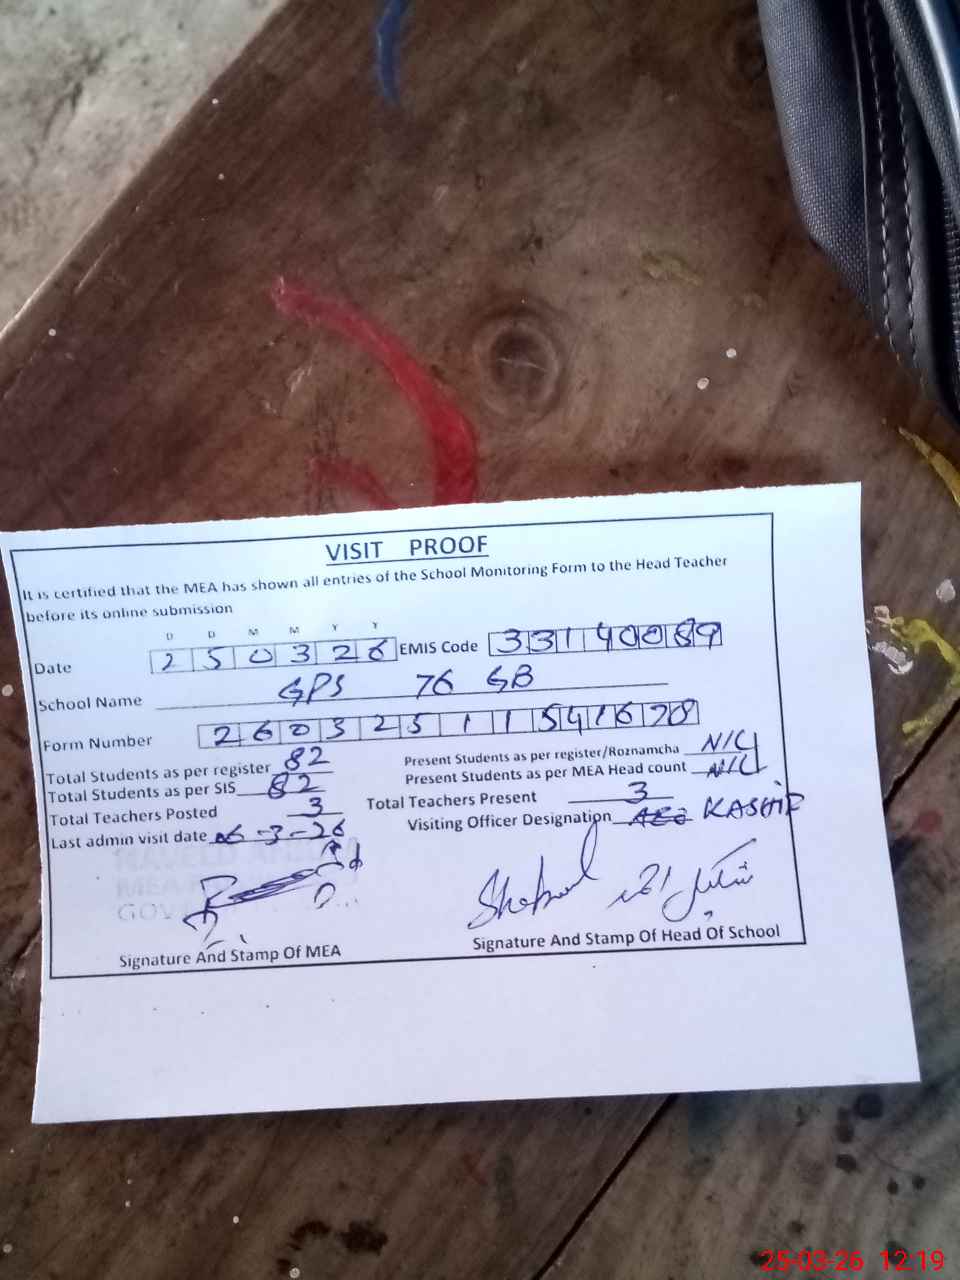 VISIT PROOF
It is certified that the MEA has shown all entries of the School Monitoring Form to the Head Teacher
before its online submission
D D M M Y Y
Date 2 5 0 3 2 6 EMIS Code 3 3 1 4 0 0 8 9
School Name GPS 76 GB
Form Number 2 6 0 3 2 5 1 1 5 4 1 6 7 8
Total Students as per register 82 Present Students as per register/Roznamcha N/C
Total Students as per SIS 82 Present Students as per MEA Head count N/C
Total Teachers Posted 3 Total Teachers Present 3
Last admin visit date 06-3-26 Visiting Officer Designation AEO KASHIF
GOV
Signature And Stamp Of MEA Signature And Stamp Of Head Of School
25-03-26 12:19